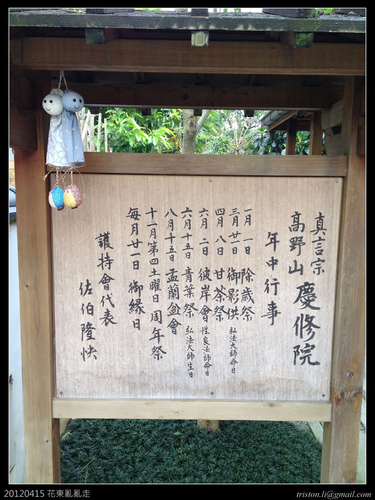 真言宗
高野山 慶修院
年中行事
一月一日 除歳祭
三月廿一日 御影供 弘法大師命日
四月八日 甘茶祭
六月二日 彼岸會
六月十五日 青葉祭 弘法大師生日
八月十五日 盂蘭盆會
十一月第四土曜日 周年祭
每月廿一日 御緣日
護持會代表
佐伯隆快
20120415 花東亂亂走
triston.li@gmail.com